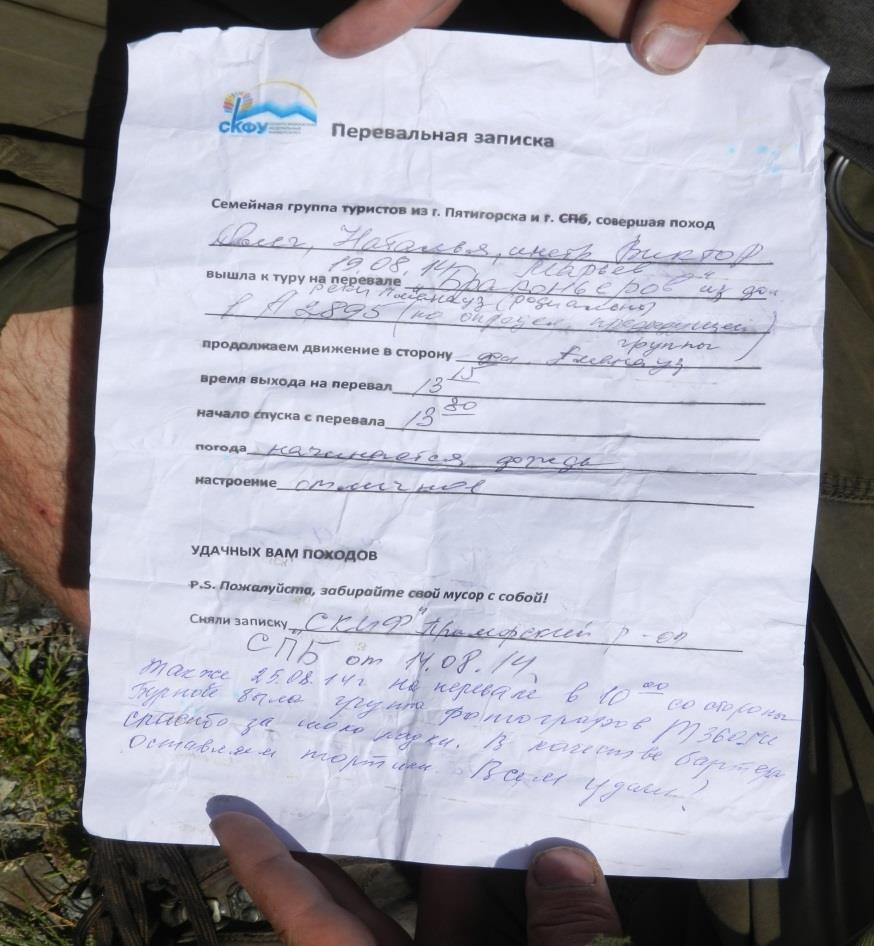 СКФУ
Перевальная записка
Семейная группа туристов из г. Пятигорска и г. СПб, совершая поход
Наталья, инстр. Виктор
19.08.14 Марьев
вышла к туру на перевале "Браконьеров" из дол.
реки (радиально)
А 2895 (по определ. предыдущей
группы)
продолжаем движение в сторону
время выхода на перевал 13 15
начало спуска с перевала 13 30
погода начинается дождь
настроение отличное
УДАЧНЫХ ВАМ ПОХОДОВ
P.S. Пожалуйста, забирайте свой мусор с собой!
Сняли записку "СКИФ" Приморский р-он
СПБ от 14.08.14
Также 25.08.14г на перевале в 10 00 со стороны
Бурной была группа фотографов
спасибо за шоколадки. В качестве бартера
оставляем тортики. Всем удачи!